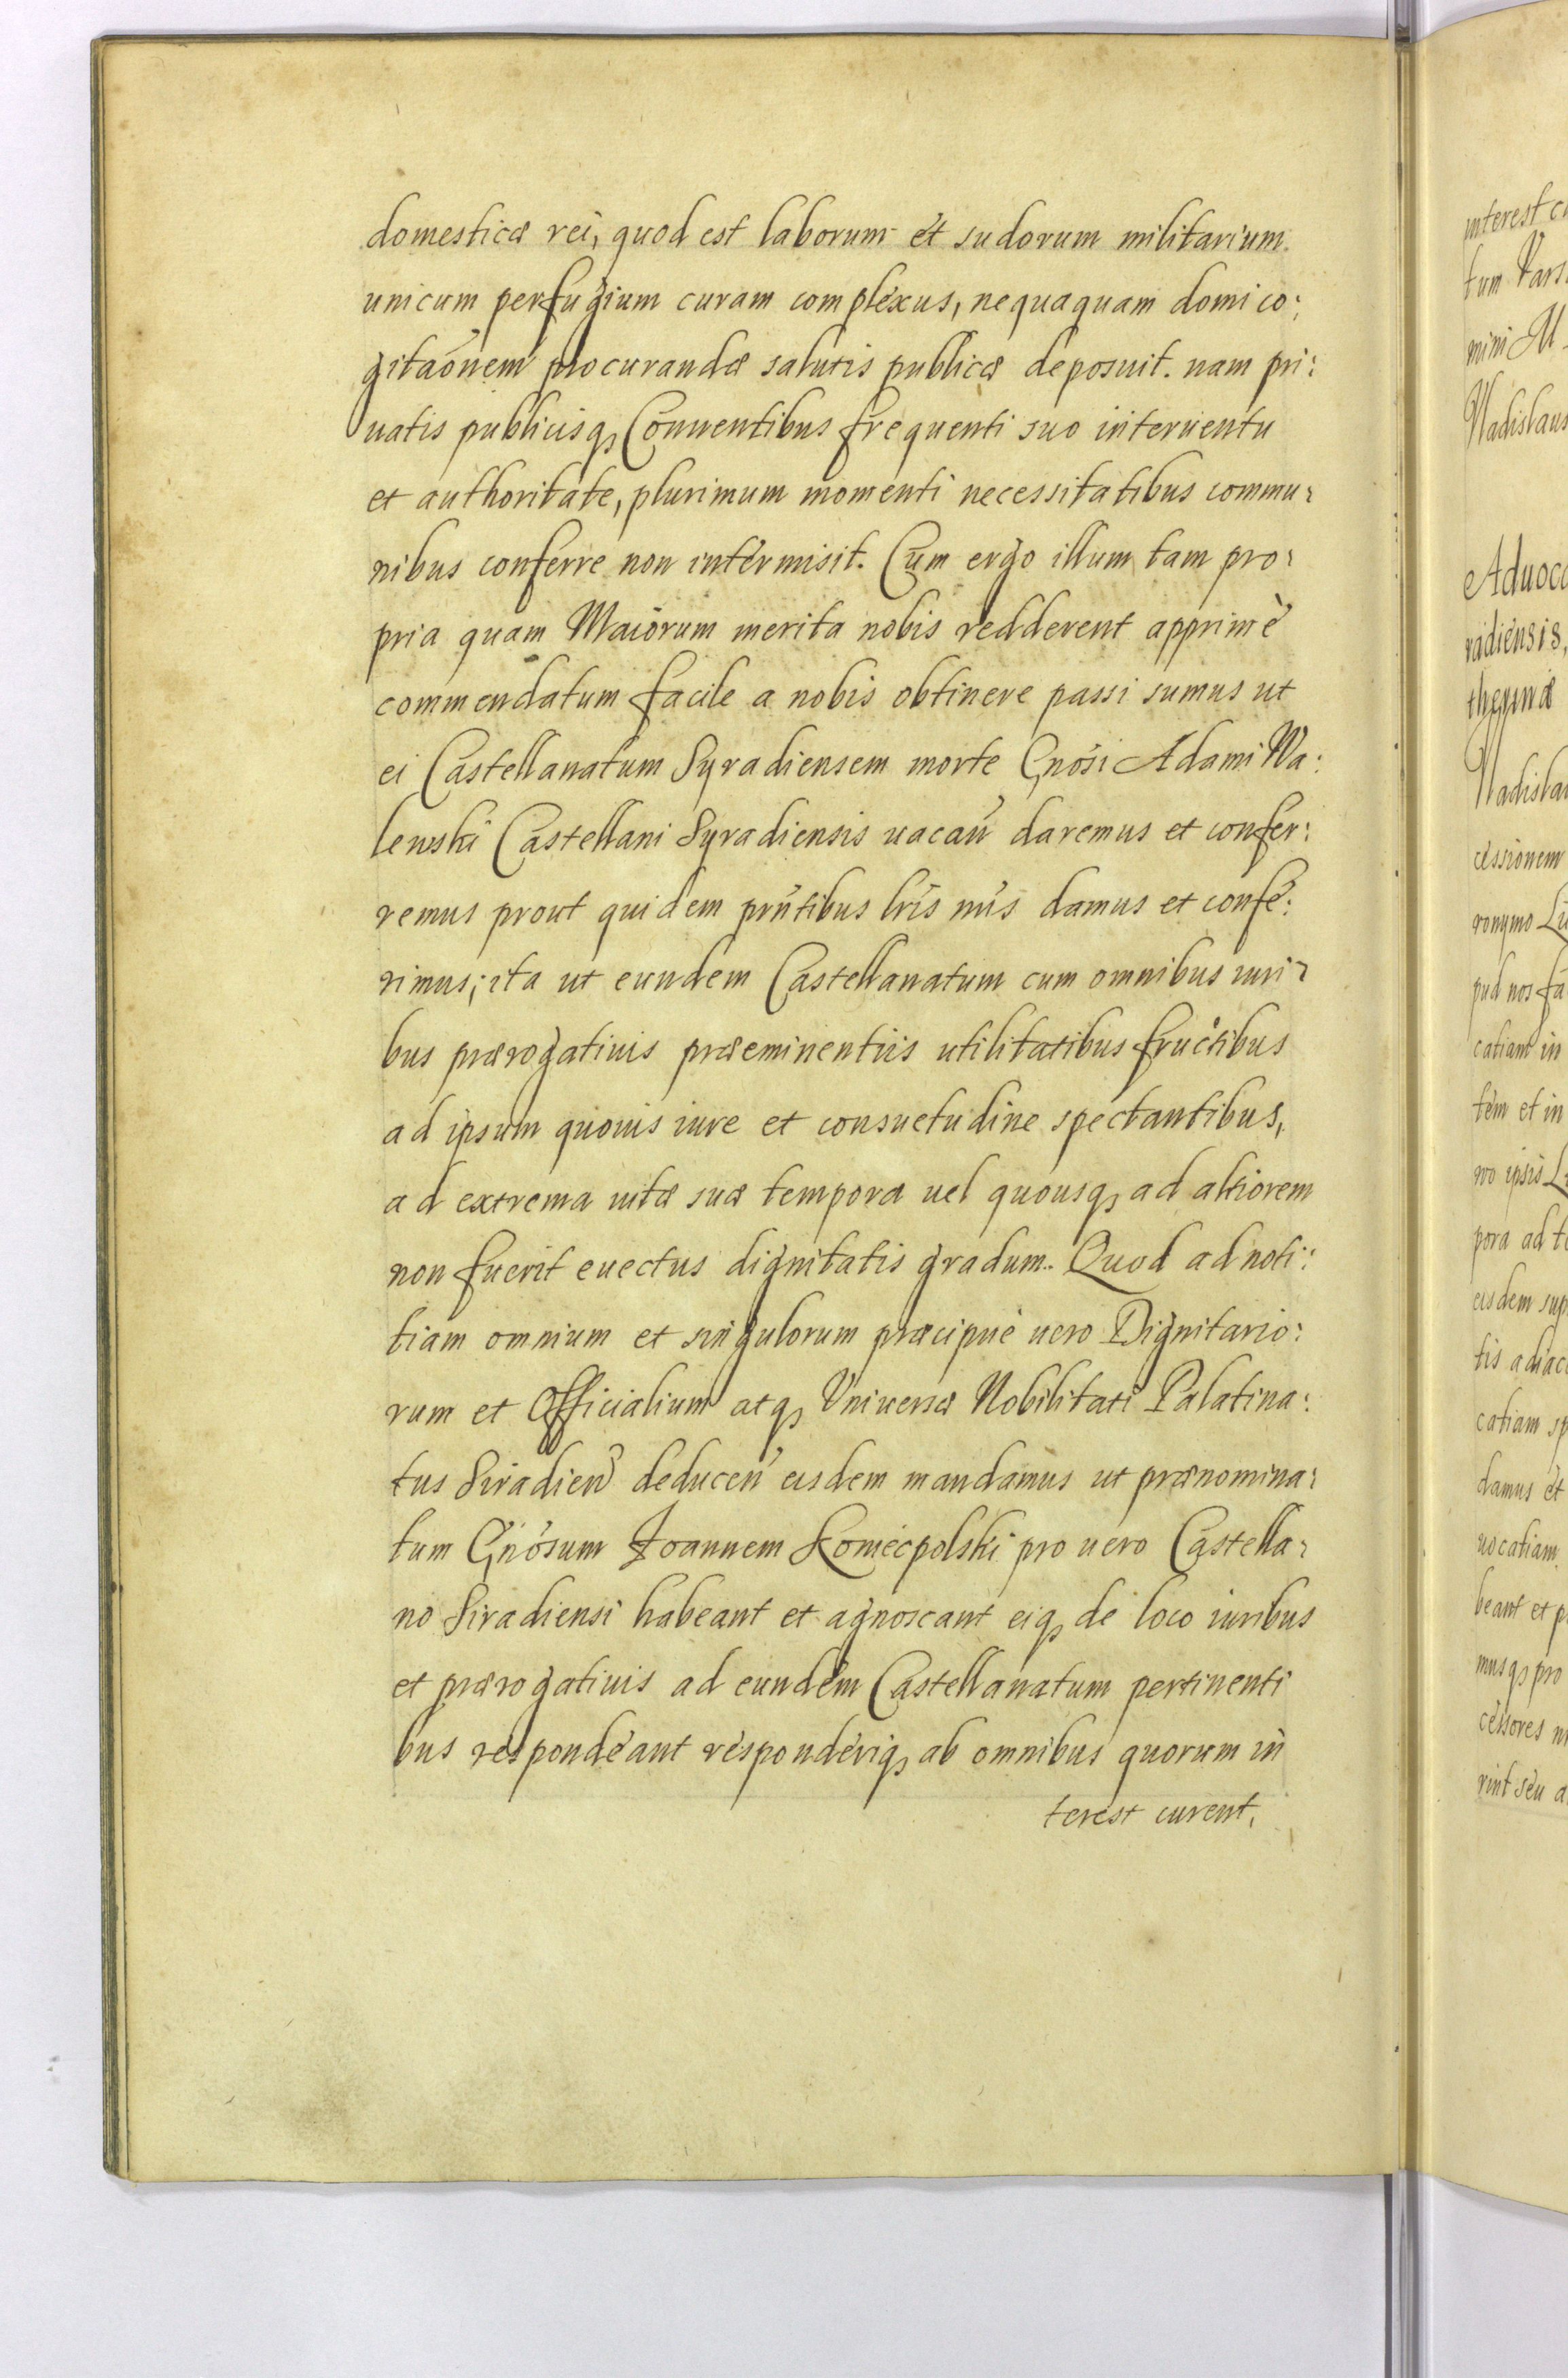 domesticæ rei, quod est laborum et sudorum militarium
unicum perfugium curam complexus, nequaquam domi co:
gitaõnem procurandæ salutis publicæ deposuit. nam pri:
uatis publicisq₃ Conuentibus frequenti suo interuentu
et authoritate, plurimum momenti necessitatibus commu:
nibus conferre non intermisit. Cum ergo illum tam pro:
pria quam Maiorum merita nobis redderent apprimè
commendatum facile a nobis obtinere passi sumus ut
ei Castellanatum Syradiensem morte Gnosi Adami Wa:
lewski Castellani Syradiensis uacan̄ daremus et confer:
remus prout quidem pn̄tibus lr̄is nr̄is damus et confe:
rimus; ita ut eundem Castellanatum cum omnibus iuri:
bus prærogatiuis præeminentiis utilitatibus fructibus
ad ipsum quouis iure et consuetudine spectantibus,
ad extrema uitæ suæ tempora uel quousq₃ ad altiorem
non fuerit euectus dignitatis gradum. Quod ad noti:
tiam omnium et singulorum præcipuè uero Dignitario:
rum et Officialium atq₃ Vniuersæ Nobilitati Palatina:
tus Siradien̄ deducen̄ eisdem mandamus ut prænomina:
tum Gnosum Joannem Koniecpolski pro uero Castella:
no Siradiensi habeant et agnoscant eiq₃ de loco iuribus
et prærogatiuis ad eundem Castellanatum pertinenti
bus respondeant responderiq₃ ab omnibus quorum in
terest curent,
interest
tum
mini M
Vladislaus
Aduoca
radiensis,
Vladisla
cessionem
ronymo
pud nos fa
catiam in
tem et in
ro ipsis
pora ad te
eisdem sup
tis adiac
catiam sp
damus et
uocatiam
beant et p
musq₃ pro
cessores
rint seu a